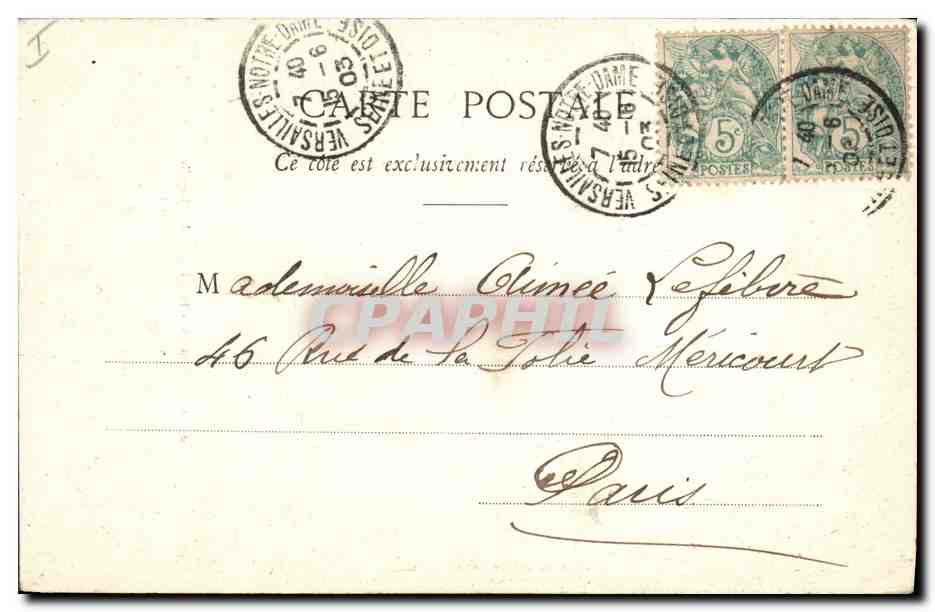 I
VERSAILLES-NOTRE-DAME
7 40
15-6
03
SEINE ET OISE
VERSAILLES-NOTRE-DAME
7 40
15-6
03
5c
POSTES
5c
POSTES
DAME
40
6
ET OISE
CARTE POSTALE
Ce côté est exclusivement réservé à l'adre
Mademoiselle Aimée Lefébvre
CPAPHIL
46 Rue de la Folie Méricourt
Paris